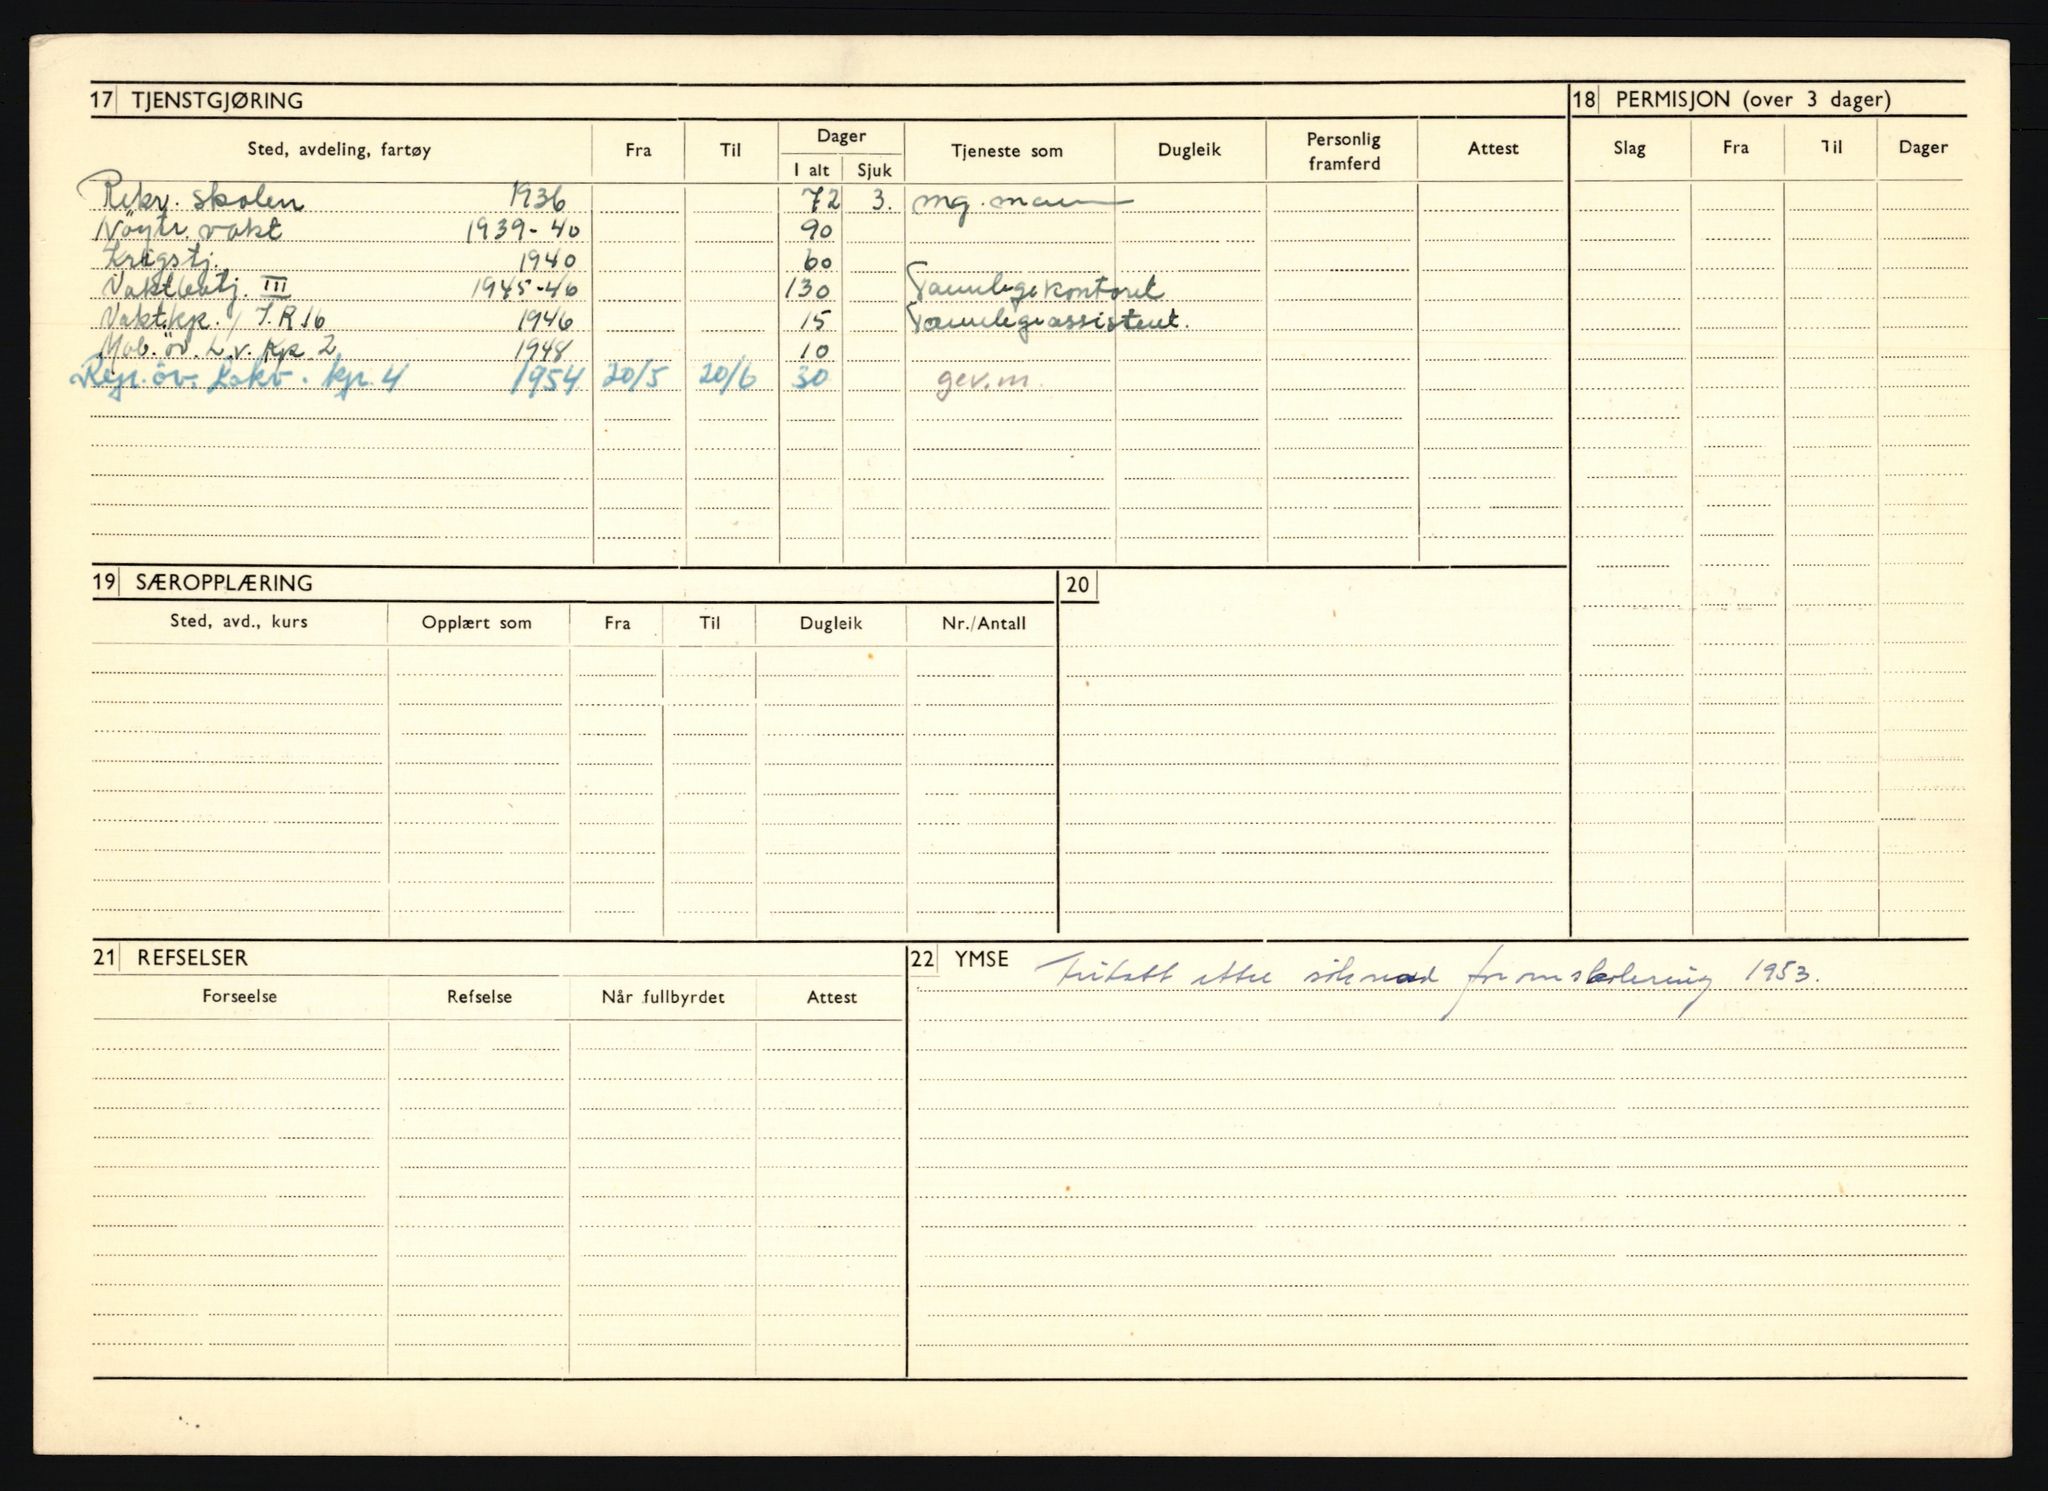 17 TJENSTGJØRING
Sted, avdeling, fartøy Fra Til Dager I alt Sjuk Tjeneste som Dugleik Personlig framferd Attest
Rekr. skolen 1936 72 3. mg. mann
Nöytr. vakt 1939-40 90
Krigstj. 1940 60
Vakttj. III 1945-46 130 Tannlegekontoret
Vakt.kp. / I.R 16 1946 15 Tannlegeassistent.
Mob. öv. L.v. Kp. 2 1948 10
Rep. öv. Lokv. kp. 4 1954 20/5 20/6 30 gev.m.
18 PERMISJON (over 3 dager)
Slag Fra Til Dager
19 SÆROPPLÆRING
Sted, avd., kurs Opplært som Fra Til Dugleik Nr./Antall
20
21 REFSELSER
Forseelse Refselse Når fullbyrdet Attest
22 YMSE Fritatt etter söknad for omskolering 1953.